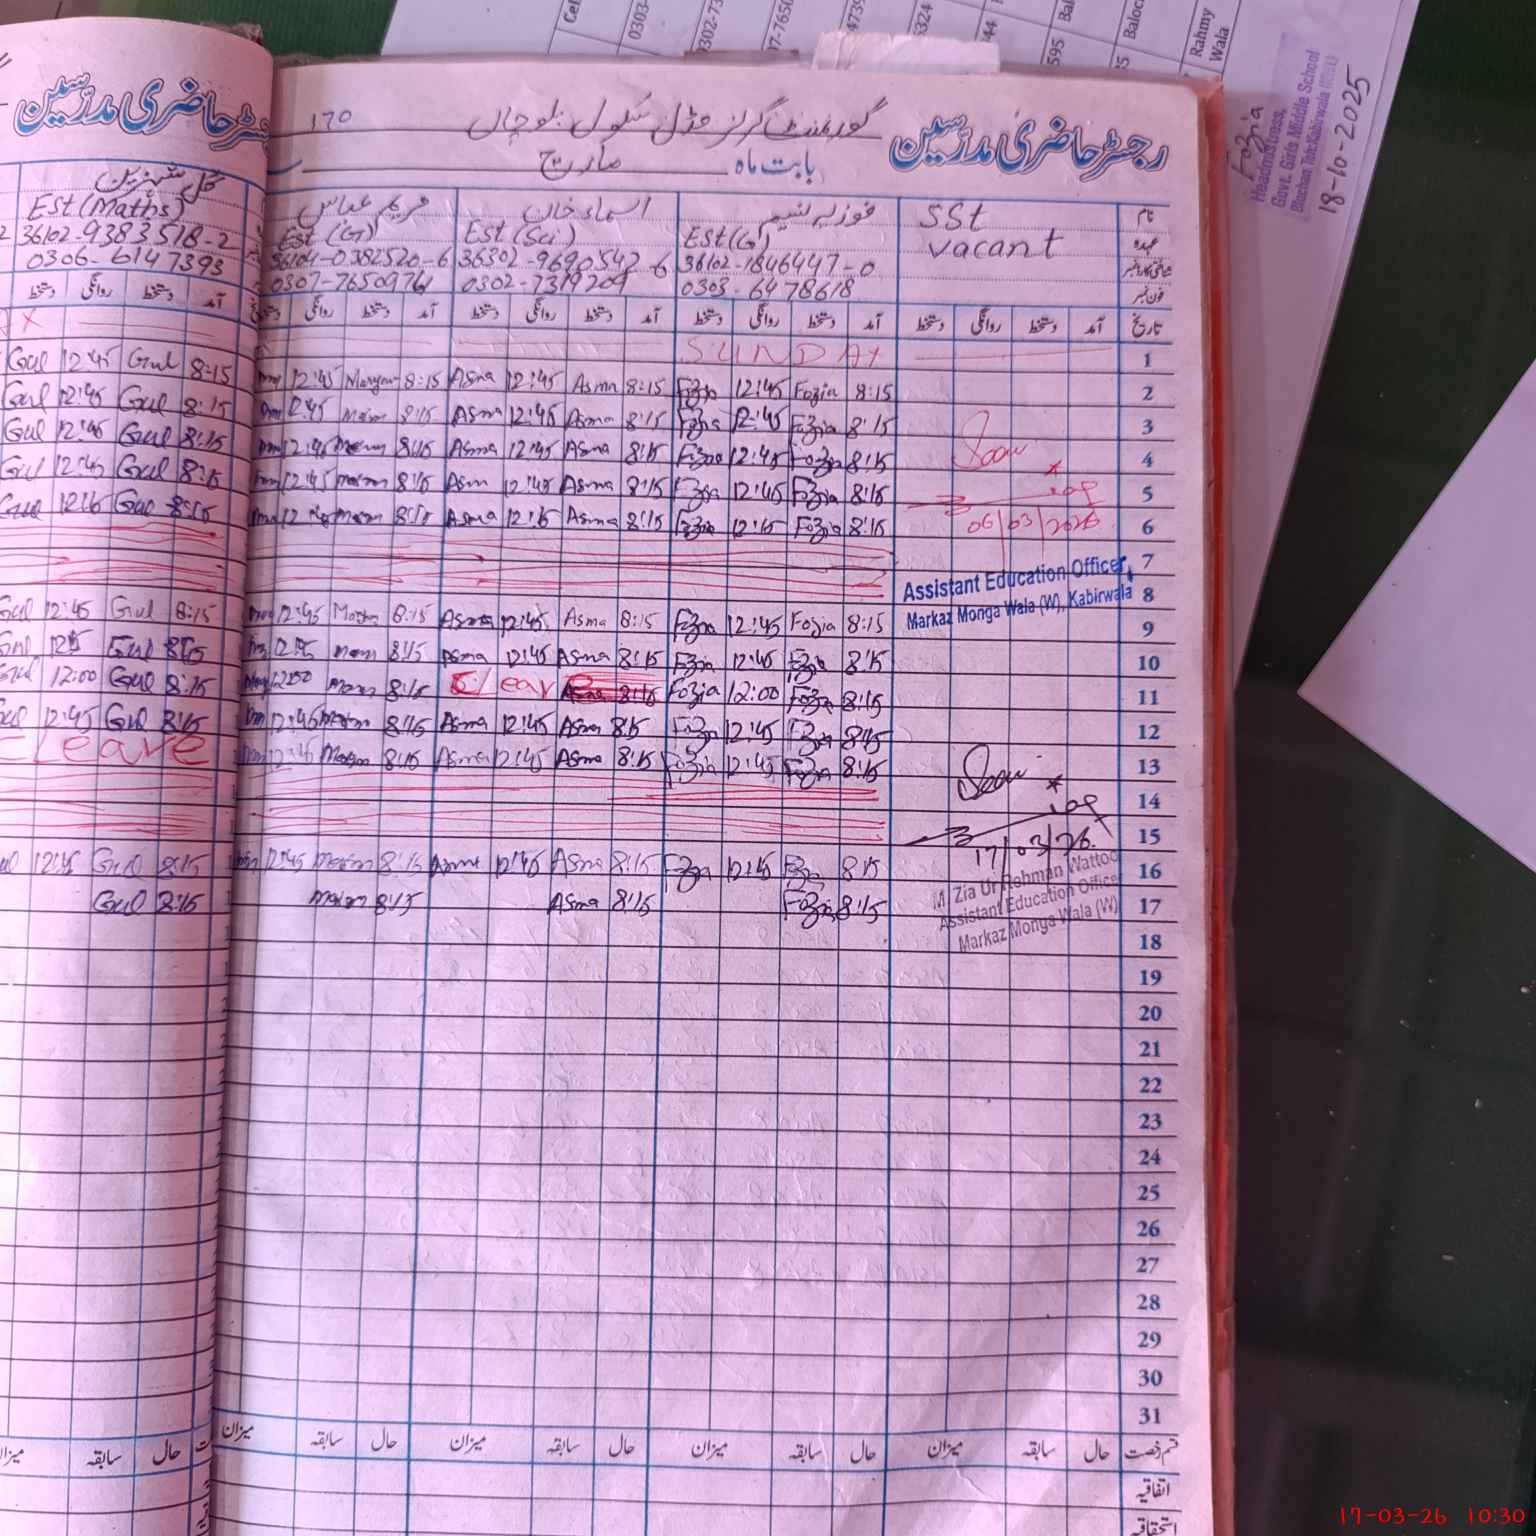 رجسٹر حاضری مدرّسین
گورنمنٹ گرلز مڈل سکول بلوچاں
170
بابت ماہ مارچ
رجسٹر حاضری مدرّسین
نام SSt فوزیہ نسیم اسماء خان مریم عباس گل شہزین
عہدہ vacant Est (G) Est (Sci) Est (G) Est (Maths)
36102-1846447-0 36302-9690542-6 36104-0382520-6 36102-9383518-2
فون نمبر 0303-6478618 0302-7319209 0307-7650976 0306-6147393
تاریخ آمد دستخط روانگی دستخط آمد دستخط روانگی دستخط آمد دستخط روانگی دستخط آمد دستخط روانگی
1 SUNDAY
Gul 12:45 Gul 8:15 12:45 Maryam 8:15 Asma 12:45 Asma 8:15 Fozia 12:45 Fozia 8:15 2
Gul 12:45 Gul 8:15 12:45 8:15 Asma 12:45 Asma 8:15 Fozia 12:45 Fozia 8:15 3
Gul 12:45 Gul 8:15 12:45 8:15 Asma 12:45 Asma 8:15 Fozia 12:45 Fozia 8:15 Seen 4
Gul 12:45 Gul 8:15 12:45 8:15 Asma 12:45 Asma 8:15 Fozia 12:45 Fozia 8:15 5
Gul 12:15 Gul 8:15 8:15 Asma 12:15 Asma 8:15 Fozia 12:15 Fozia 8:15 06/03/2026 6
7
Assistant Education Officer,
Markaz Monga Wala (W), Kabirwala
8
Gul 12:45 Gul 8:15 12:45 8:15 Asma 12:45 Asma 8:15 Fozia 12:45 Fozia 8:15 9
Gul Gul 8:15 8:15 Asma 12:45 Asma 8:15 Fozia 12:45 Fozia 8:15 10
Gul 12:00 Gul 8:15 12:00 8:15 C/leave Asma 8:15 Fozia 12:00 Fozia 8:15 11
Gul 12:45 Gul 8:15 12:45 8:15 Asma 12:45 Asma 8:15 Fozia 12:45 Fozia 8:15 12
C Leave 12:45 Maryam 8:15 Asma 12:45 Asma 8:15 Fozia 12:45 Fozia 8:15 Seen 13
14
15
17/03/26
Gul 12:45 Gul 8:15 12:45 8:15 Asma 12:45 Asma 8:15 Fozia 12:45 Fozia 8:15 16
Gul 8:15 8:15 Asma 8:15 Fozia 8:15 17
M. Zia Ur Rehman Wattoo
Assistant Education Officer
Markaz Monga Wala (W)
18
19
20
21
22
23
24
25
26
27
28
29
30
31
قسم رخصت حال سابقہ میزان حال سابقہ میزان حال سابقہ میزان حال سابقہ میزان
اتفاقیہ
استحقاقیہ
Rahmy
Wala
Fozia
Headmistress,
Govt. Girls Middle School
18-10-2025
17-03-26 10:30